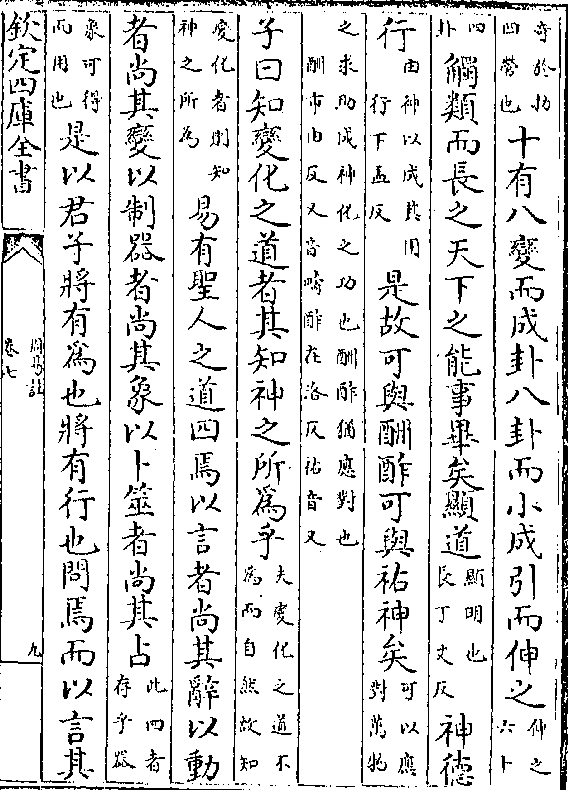 奇於扐四營也十有八變而成卦八卦而小成引而伸之伸之六十
四卦觸類而長之天下之能事畢矣顯道顯明也長丁丈反神德
行由神以成其用行下孟反是故可與酬酢可與祐神矣可以應對萬物
之求助成神化之功也酬酢猶應對也酬市由反又音疇酢在洛反祐音又
子曰知變化之道者其知神之所爲乎夫變化之道不爲而自然故知
變化者則知神之所爲易有聖人之道四焉以言者尚其辭以動
者尚其變以制器者尚其象以卜筮者尚其占此四者存乎器
象可得而用也是以君子將有爲也將有行也問焉而以言其
欽定四庫全書
周易註
卷七
九